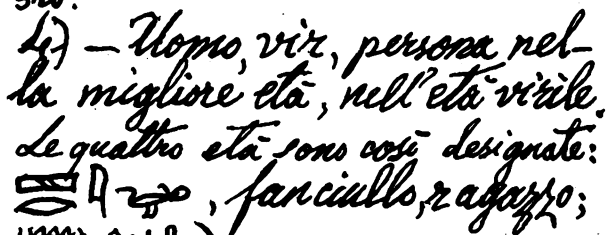 4) — Uomo, vir, persona nel-
la migliore età, nell'età virile.
Le quattro età sono così designate:
, fanciullo, ragazzo;